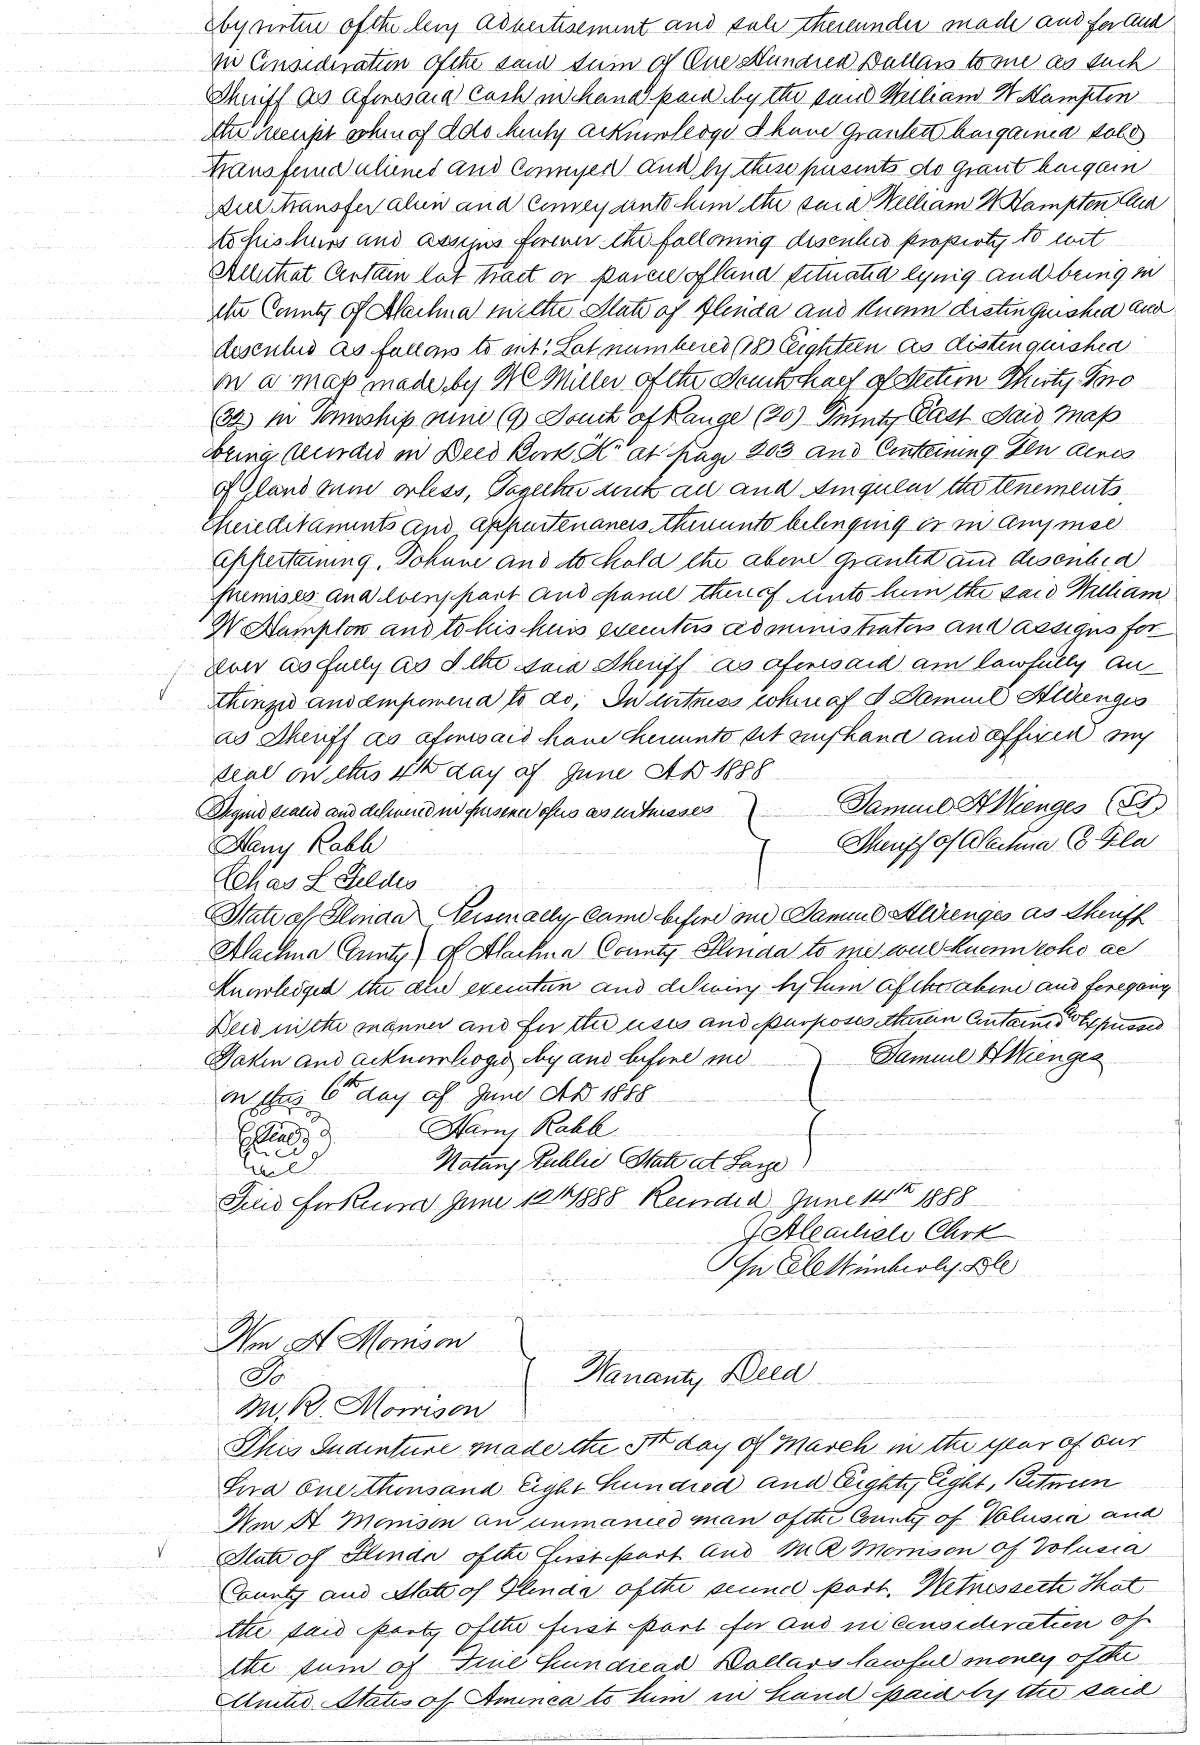 by virtue of the levy advertisement and sale thereunder made and for and
in Consideration of the said sum of One Hundred Dollars to me as such
Sheriff as aforesaid Cash in hand paid by the said William W Hampton
the receipt whereof I do hereby acknowledge I have Granted bargained sold
transferred aliened and Conveyed and by these presents do grant bargain
sell transfer alien and Convey unto him the said William W Hampton and
to his heirs and assigns forever the following described property to wit
All that Certain lot tract or parcel of land situated lying and being in
the County of Alachua in the State of Florida and known distinguished and
described as follows to wit: Lot numbered (18) Eighteen as distinguished
on a map made by N C Miller of the South half of Section Thirty Two
(32) in Township nine (9) South of Range (20) Twenty East Said map
being recorded in Deed Book "K" at page 203 and Containing Ten acres
of land more or less, Together with all and singular the tenements
hereditaments and appurtenances thereunto belonging or in any wise
appertaining. To have and to hold the above granted and described
premises and every part and parcel thereof unto him the said William
W Hampton and to his heirs executors administrators and assigns for
ever as fully as I the said Sheriff as aforesaid am lawfully au
thorized and empowered to do, In witness whereof I Samuel H Wienges
as Sheriff as aforesaid have hereunto set my hand and affixed my
seal on this 4th day of June AD 1888
Signed sealed and delivered in presence of us as witnesses Samuel H Wienges (LS)
Harry Rabb Sheriff of Alachua Co Fla
Chas L Feldes
State of Florida Personally came before me Samuel H Wienges as Sheriff
Alachua County of Alachua County Florida to me well known who ac
knowledged the due execution and delivery by him of the above and foregoing
Deed in the manner and for the uses and purposes therein Contained & Expressed
Taken and acknowledged by and before me Samuel H Wienges
on this 6th day of June AD 1888
Seal Harry Rabb
Notary Public State at Large
Filed for Record June 12th 1888 Recorded June 14th 1888
J A Carlisle Clerk
Wimberly. DC
Wm H Morrison
To Warranty Deed
M. R. Morrison
This Indenture made the 5th day of March in the year of our
Lord one thousand Eight hundred and Eighty Eight, Between
Wm H Morrison an unmarried man of the County of Volusia and
State of Florida of the first part and M R Morrison of Volusia
County and State of Florida of the second part. Witnesseth That
the said party of the first part for and in consideration of
the sum of Five hundread Dollars lawful money of the
United States of America to him in hand paid by the said